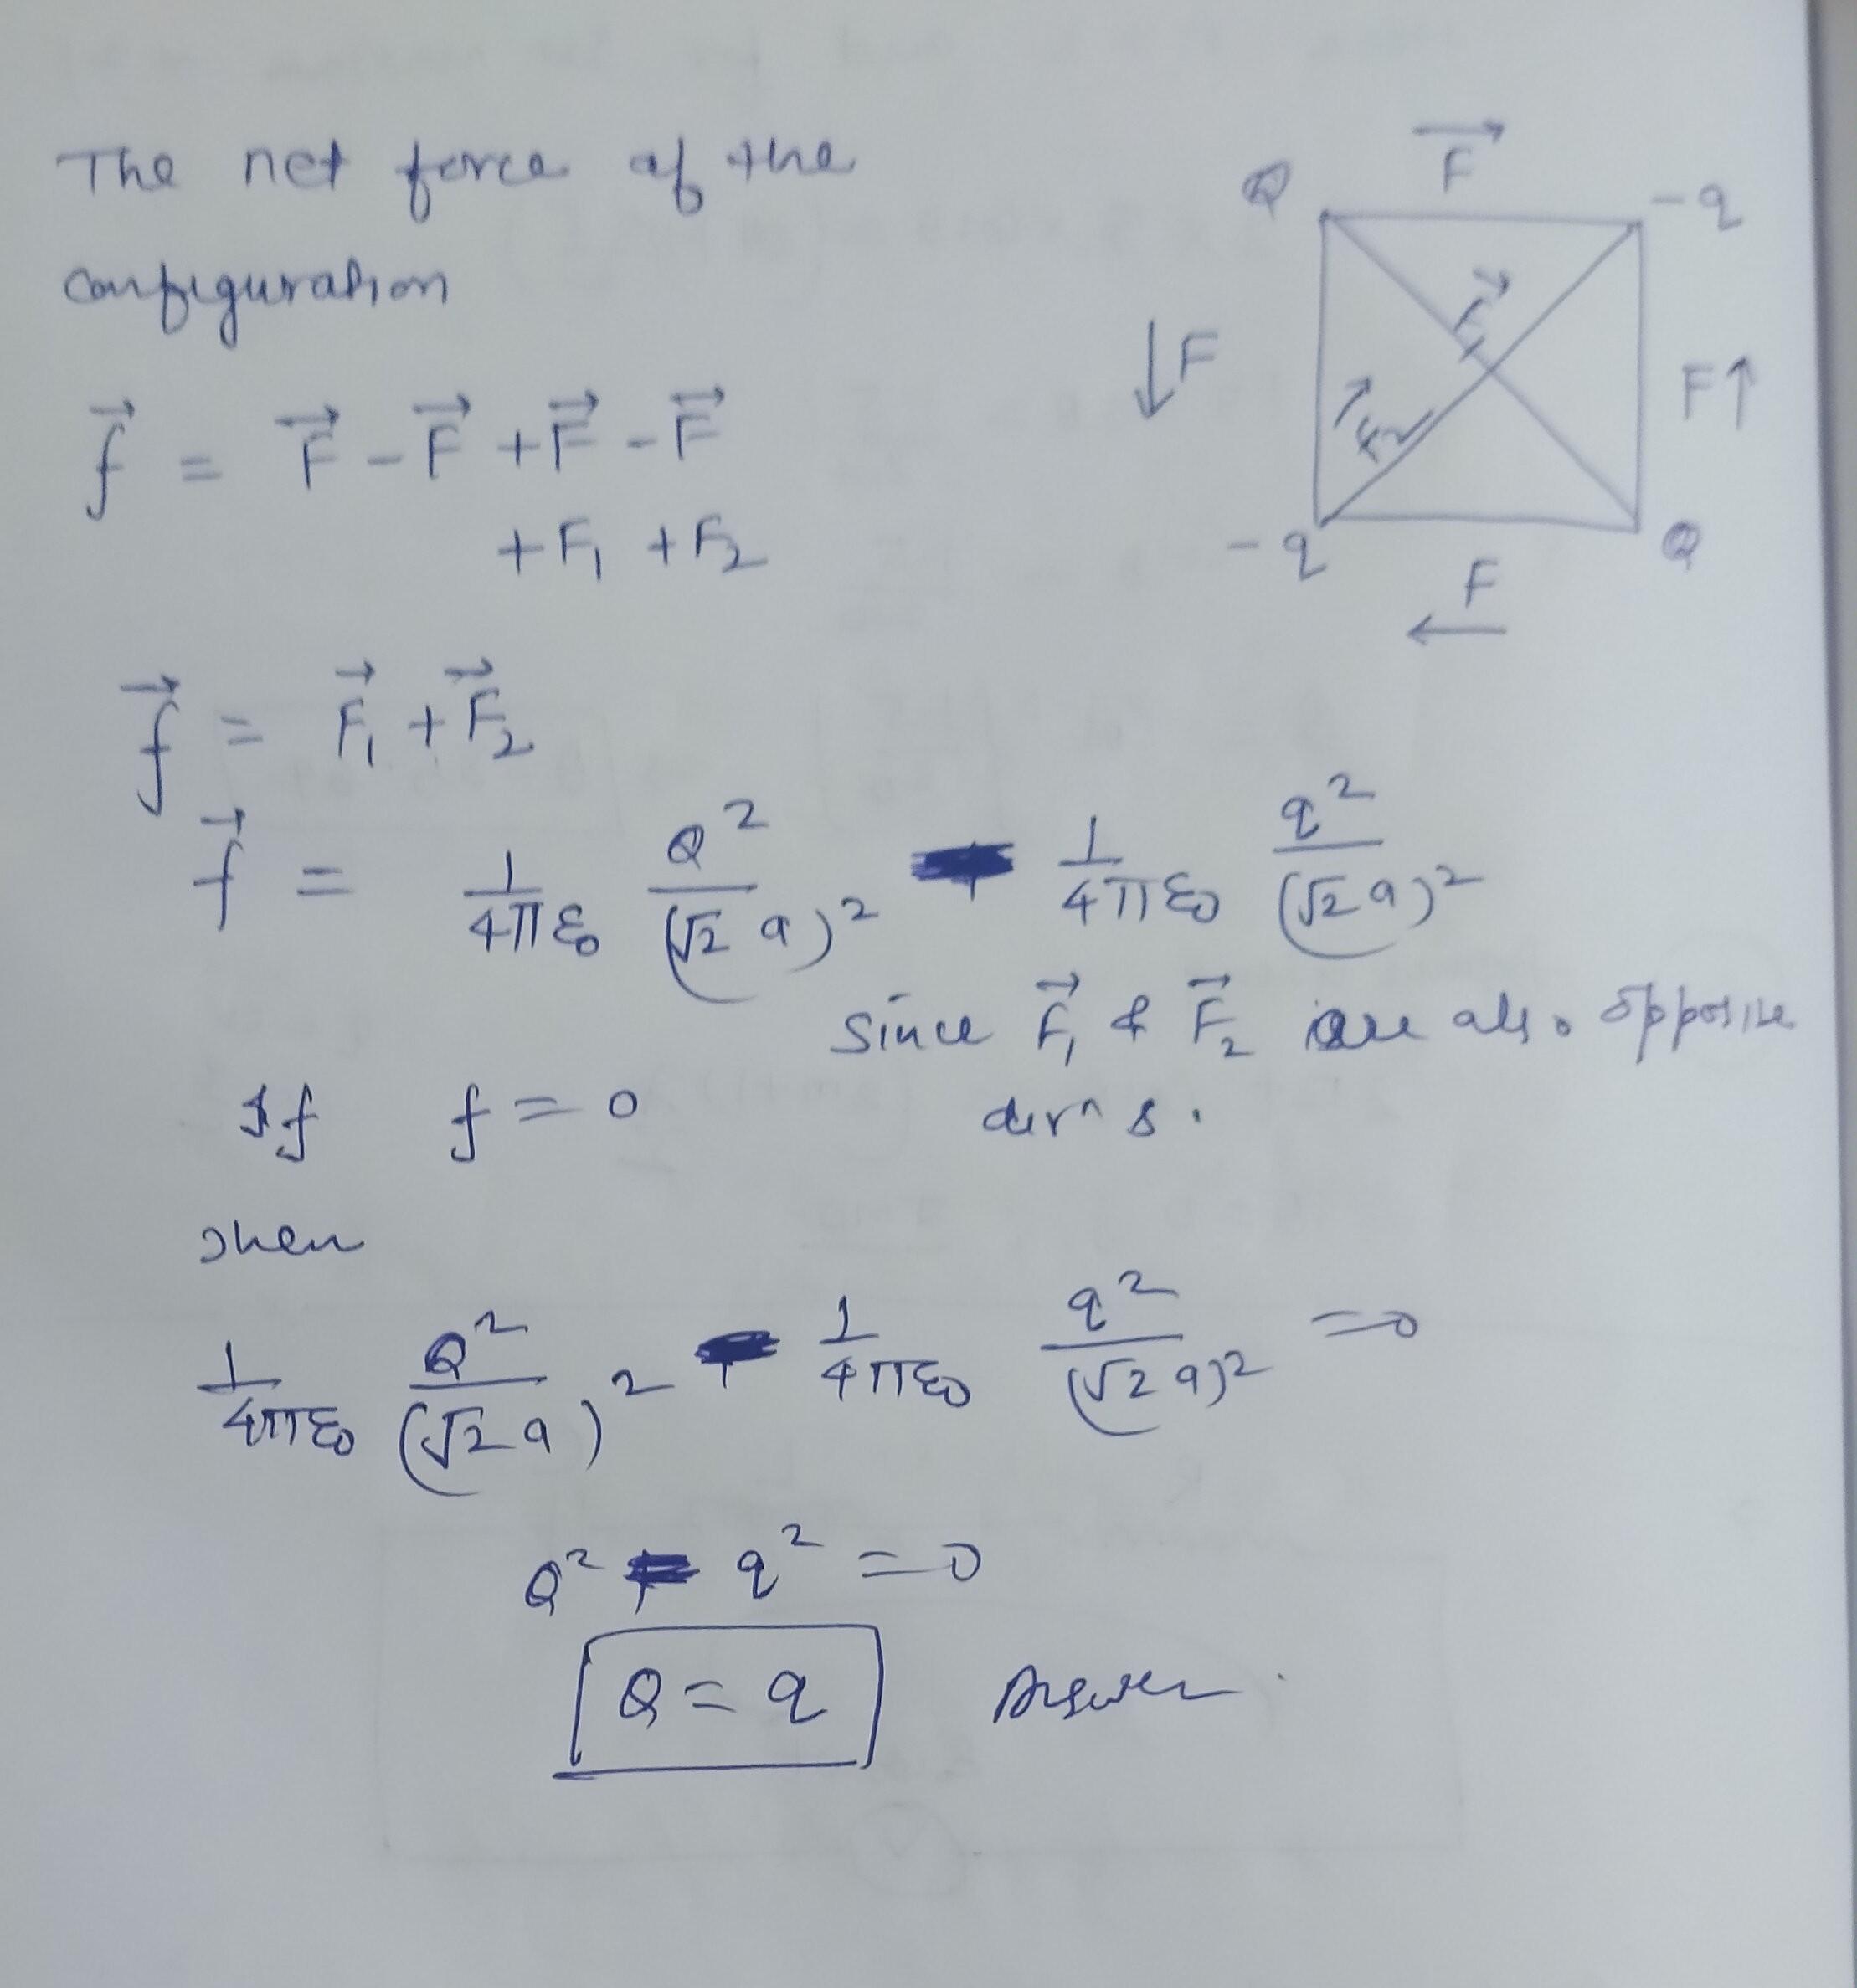 The net force of the
configuration
f⃗ = F⃗ - F⃗ + F⃗ - F⃗
+ F₁ + F₂
F⃗
Q
-q
F₁⃗
↓F
F↑
F₂⃗
-q
Q
F
←
f⃗ = F⃗₁ + F⃗₂
f⃗ = 1/4πε₀ Q²/(√2 a)² - 1/4πε₀ q²/(√2 a)²
Since F⃗₁ & F⃗₂ are also opposite
dirⁿs.
If f = 0
then
1/4πε₀ Q²/(√2 a)² - 1/4πε₀ q²/(√2 a)² = 0
Q² - q² = 0
Q = q Answer.